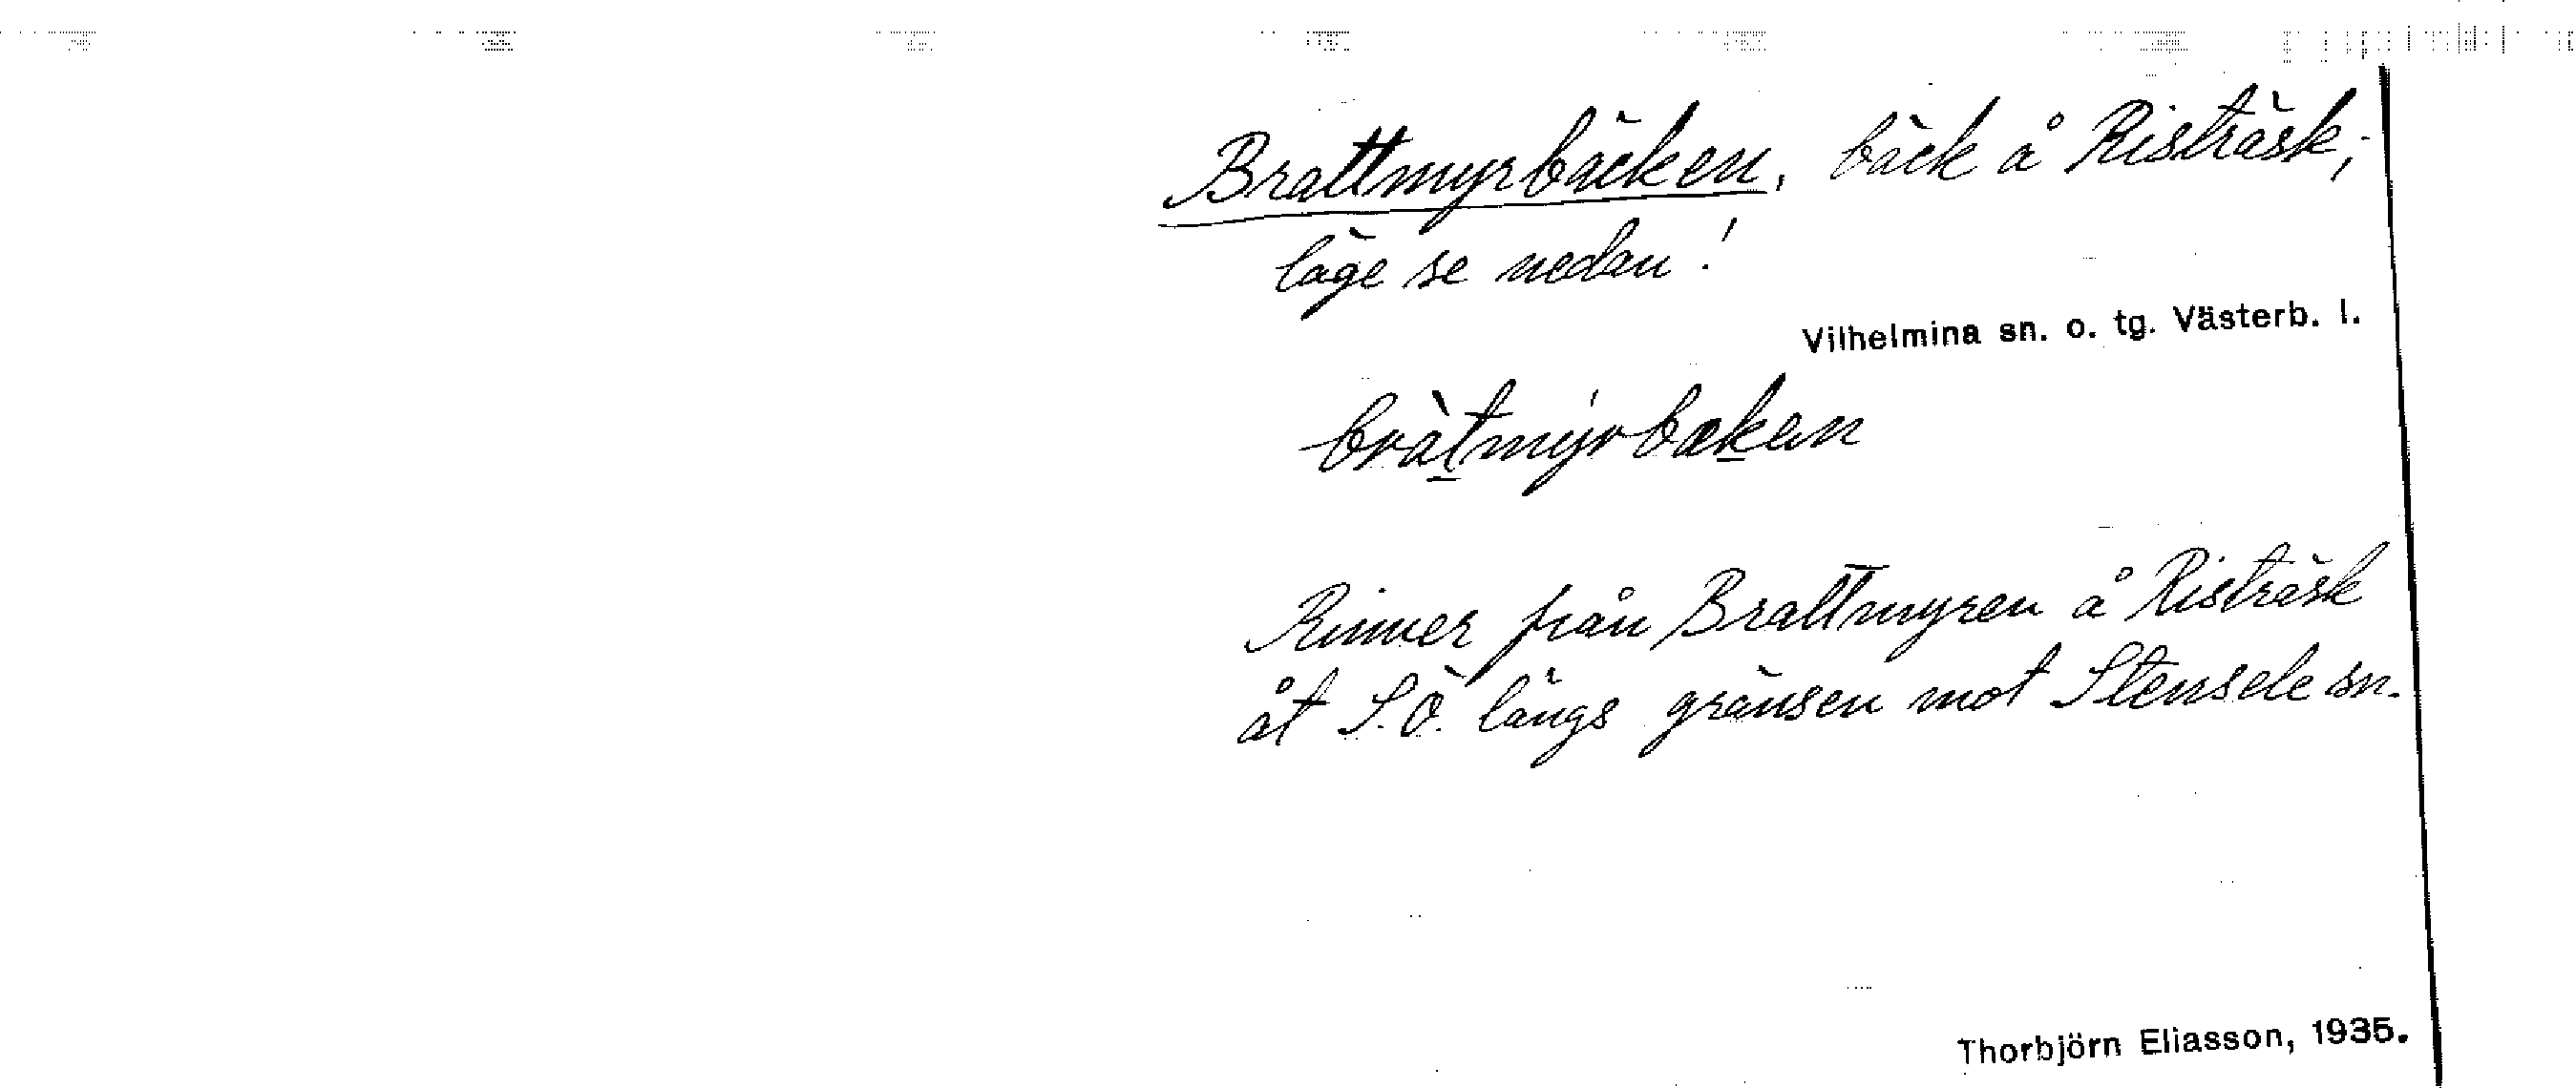 Brattmyrbäcken, bäck å Risträsk,
läge se nedan!
Vilhelmina sn. o. tg. Västerb. l.
bràt̲mýrbæk̲en
Rinner från Brattmyren å Risträsk
åt S.Ö. längs gränsen mot Stensele sn.
Thorbjörn Eliasson, 1935.